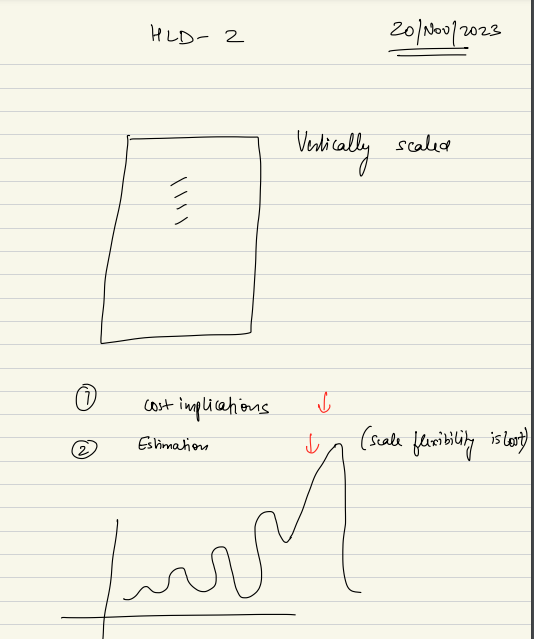 HLD- 2
20/Nov/2023
Vertically scaled
① cost implications ↓
② Estimation ↓ (scale flexibility is lost)